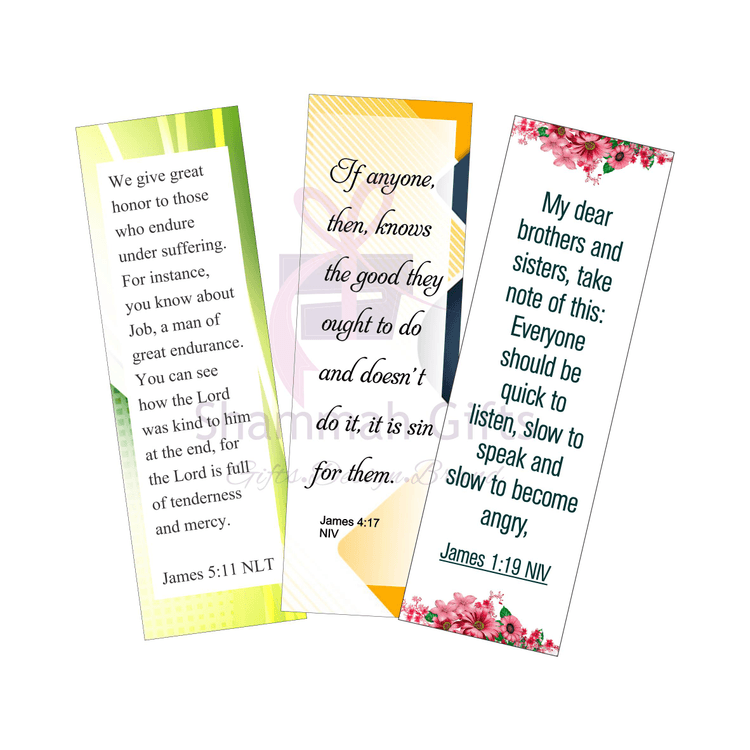 We give great
honor to those
who endure
under suffering.
For instance,
you know about
Job, a man of
great endurance.
You can see
how the Lord
was kind to him
at the end, for
the Lord is full
of tenderness
and mercy.
James 5:11 NLT
If anyone,
then, knows
the good they
ought to do
and doesn't
do it, it is sin
for them.
James 4:17
NIV
My dear
brothers and
sisters, take
note of this:
Everyone
should be
quick to
listen, slow to
speak and
slow to become
angry,
James 1:19 NIV
Shammah Gifts
Gifts.Design.Brand